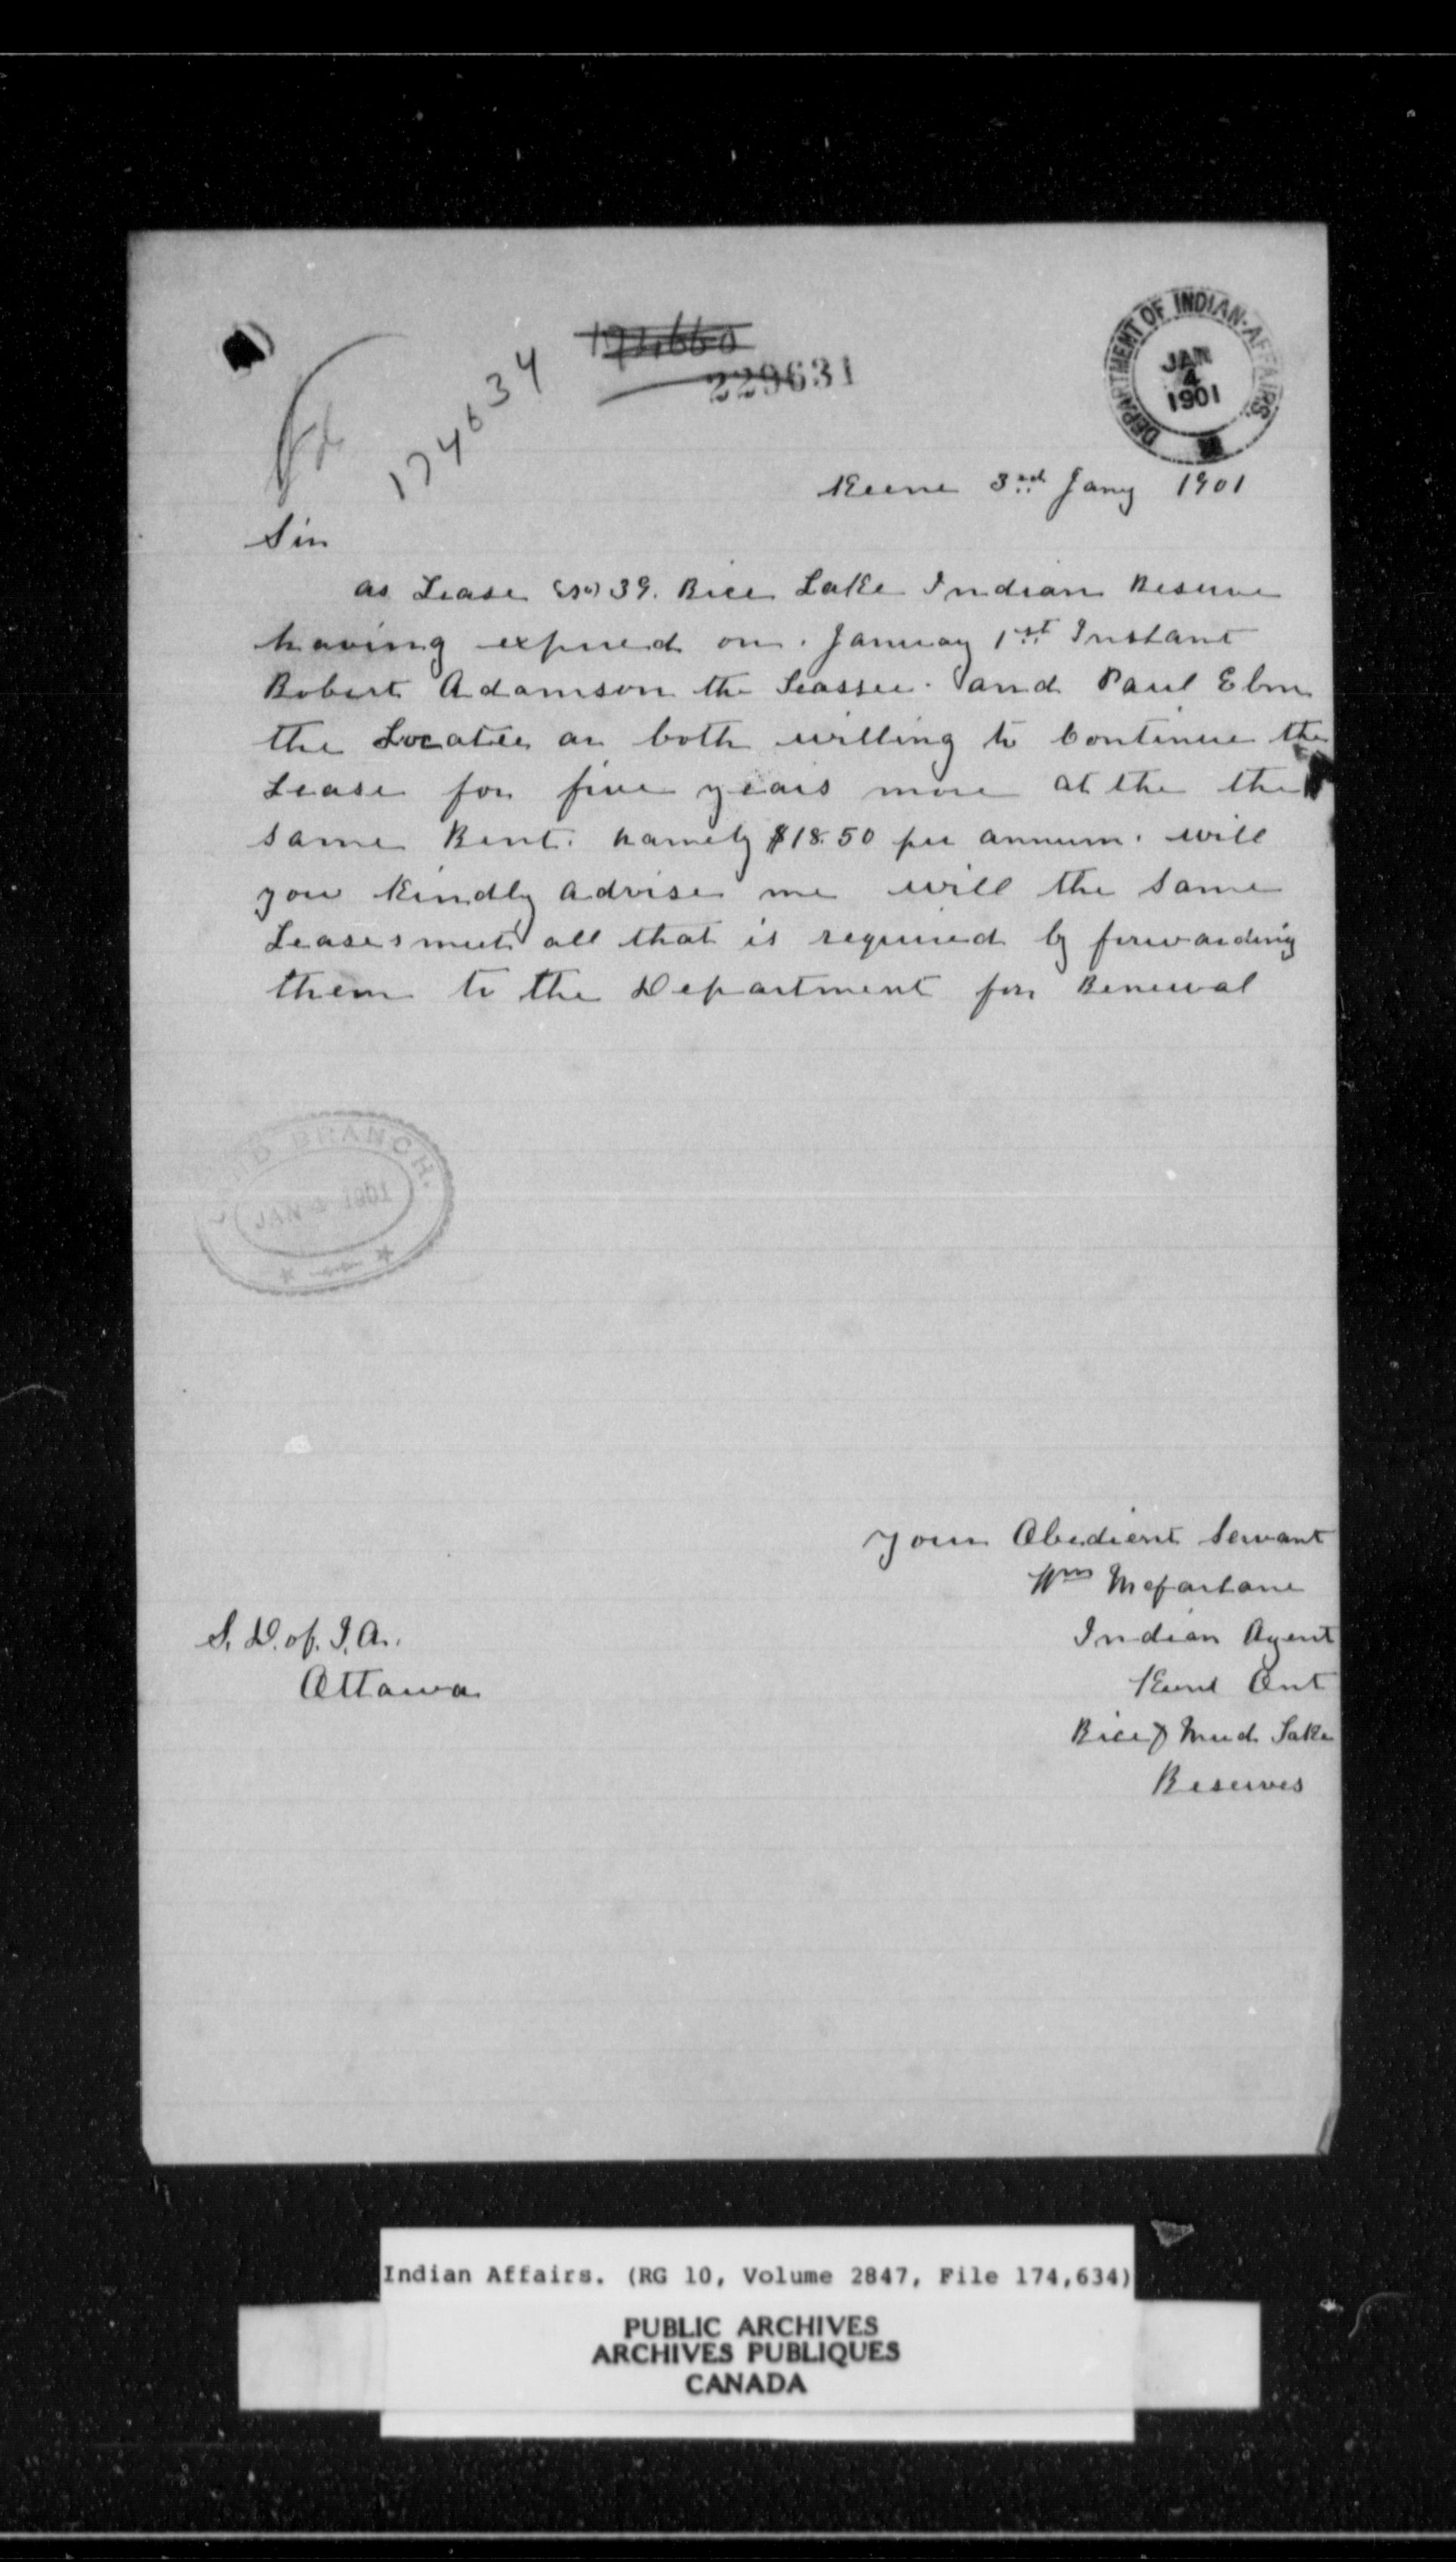 192,660
229631
174634
DEPARTMENT OF INDIAN AFFAIRS.
JAN
4
1901
Keene 3rd Jany 1901
Sir
as Lease (No) 39. Rice Lake Indian Reserve
having expired on January 1st Instant
Robert Adamson the Leassee and Paul Elm
the Locatee ar both willing to Continue the
Lease for five years more at the the
same Rent. namely $18.50 per annum. will
you Kindly advise me will the same
Leases meet all that is required by forwarding
them to the Department for Renewal
LAND BRANCH.
JAN 1901
Your Obedient Servant
Wm McFarlane
Indian Agent
Keene Ont
Rice & Mud Lake
Reserves
S. D. of. I. A.
Ottawa
Indian Affairs. (RG 10, Volume 2847, File 174,634)
PUBLIC ARCHIVES
ARCHIVES PUBLIQUES
CANADA